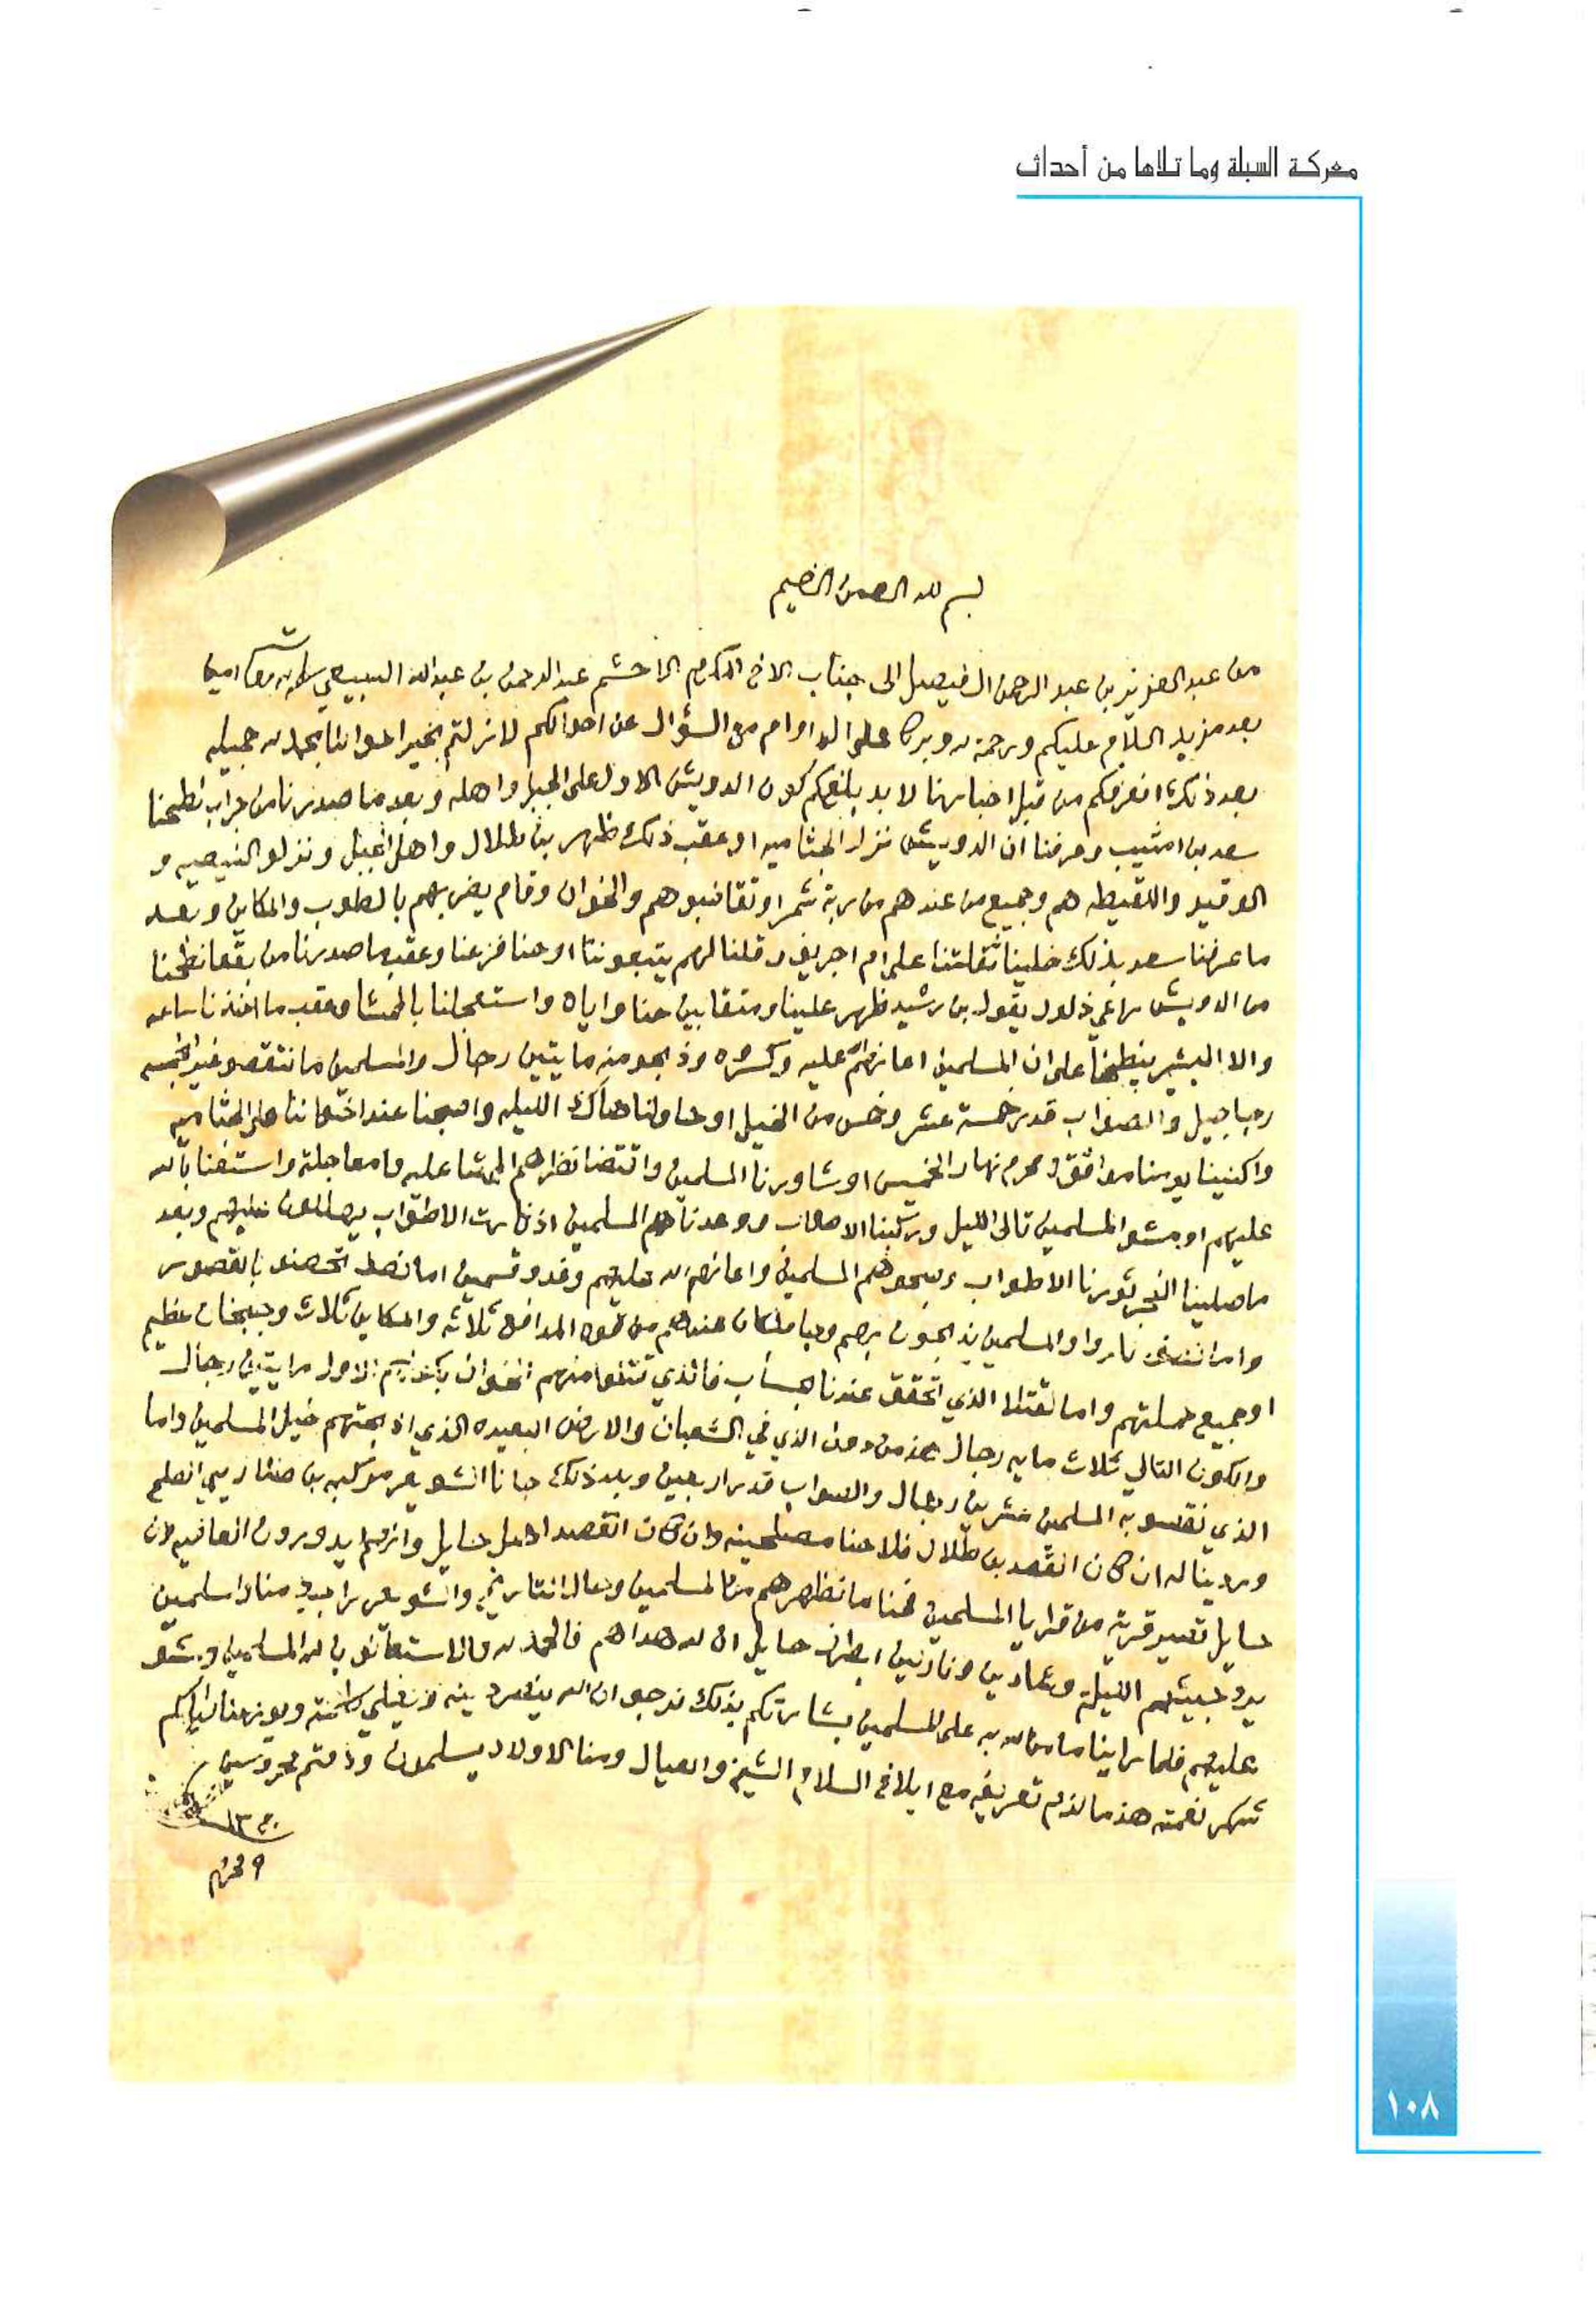 معركة السبلة وما تلاها من أحداث
بسم الله الرحمن الرحيم
من عبد العزيز بن عبد الرحمن الفيصل الى جناب الاخ المكرم الاحشم عبد الرحمن بن عبد الله السبيعي سلمه الله تعالى امين
بعد مزيد السلام عليكم ورحمة الله وبركاته على الدوام مع السؤال عن احوالكم لا زلتم بخير احوالنا بحمد الله جميله
بعد ذلك انعرفكم من قبل اخبارنا لابد بلغكم كون الدويش الاول على الجبل واهله وبعد ما صدرنا من جراب نطحنا
سعد بن امثيب وعرفنا ان الدويش نزل الجثاميه او عقب ذلك ظهر بن طلال واهل الجبل ونزلو النيصيه و
الوقيد واللقيطه هم وجميع من عندهم من برية شمر او تقاضبوهم والاخوان وقام يضربهم بالطوب والمكاين وبعد
ما عرفنا سعد بذلك خلينا ثقلتنا على ام اجريف وقلنا لهم يتبعوننا او حنا فزعنا وعقب ما صدرنا من بقعا نطحنا
من الدويش راعي ذلول يقول بن رشيد ظهر علينا ومتقابين حنا واياه واستعجلنا بالممشا وعقب ما اخذنا ساعه
والا البشير ينطحنا على ان المسلمين اعانهم الله عليه وكسروه وذبحو منه مايتين رجال والمسلمين ما نتقصو غير خمسه
رجاجيل والصواب قدر خمسة عشر وخمس من الخيل او حاولنا هاك الليله واصبحنا عند اخواننا على الجثاميه
واكنينا يومنا موافق ٥ محرم نهار الخميس او شاورنا المسلمين واقتضا نظرهم الممشا عليه ومعاجلته واستعنا بالله
عليهم او مشو المسلمين تالى الليل وركبنا الاطواب ووعدنا المسلمين اذا ثارت الاطواب يصلون عليهم وبعد
ما صلينا الفجر ثورنا الاطواب وسحبوهم المسلمين واعانهم الله عليهم وغدو قسمين اما نصف تحصنو بالقصور
واما نصف ناروا والمسلمين يذبحون بهم وجا ما كان عندهم من قوه المدافع ثلاثه والمكاين ثلاث وجبخان عظيم
او جميع حملتهم واما القتلا الذي تحقق عندنا بحساب فالذي قتلوا منهم الاخوان بكونهم الاول مايتين رجال
والكون التالي ثلاث مايه رجال هذا من دون الذي في الشعبان والارض البعيده الذي اذبحتهم خيل المسلمين واما
الذي نقصو به المسلمين عشرين رجال والصواب قدر اربعين وبعد ذلك جانا الشويعر مركبه بن طلال يبي الصلح
وردينا له ان كان القصد بن طلال فلا حنا مصلحينه وان كان القصد اهل حايل وانهم يدورون العافيه لان
حايل تصير قرية من قرايا المسلمين فحنا ما نظهرهم من المسلمين وحال التاريخ والشويعر راجع منا والمسلمين
بيتهم الليلة وعمادين ونازلين اطراف حايل ان الله هداهم فالحمد لله والا استعانو بالله المسلمين ومشو
عليهم فلما راينا ما من الله به على المسلمين بشارتكم بذلك نرجو ان الله ينصر دينه ويعلي كلمته ويوزعنا واياكم
شكر نعمته هذا ما لزم تعريفه مع ابلاغ السلام الشيخ والعيال ومنا الاولاد يسلمون ودمتم محروسين
١٣٤٠
٩ محرم
١٠٨